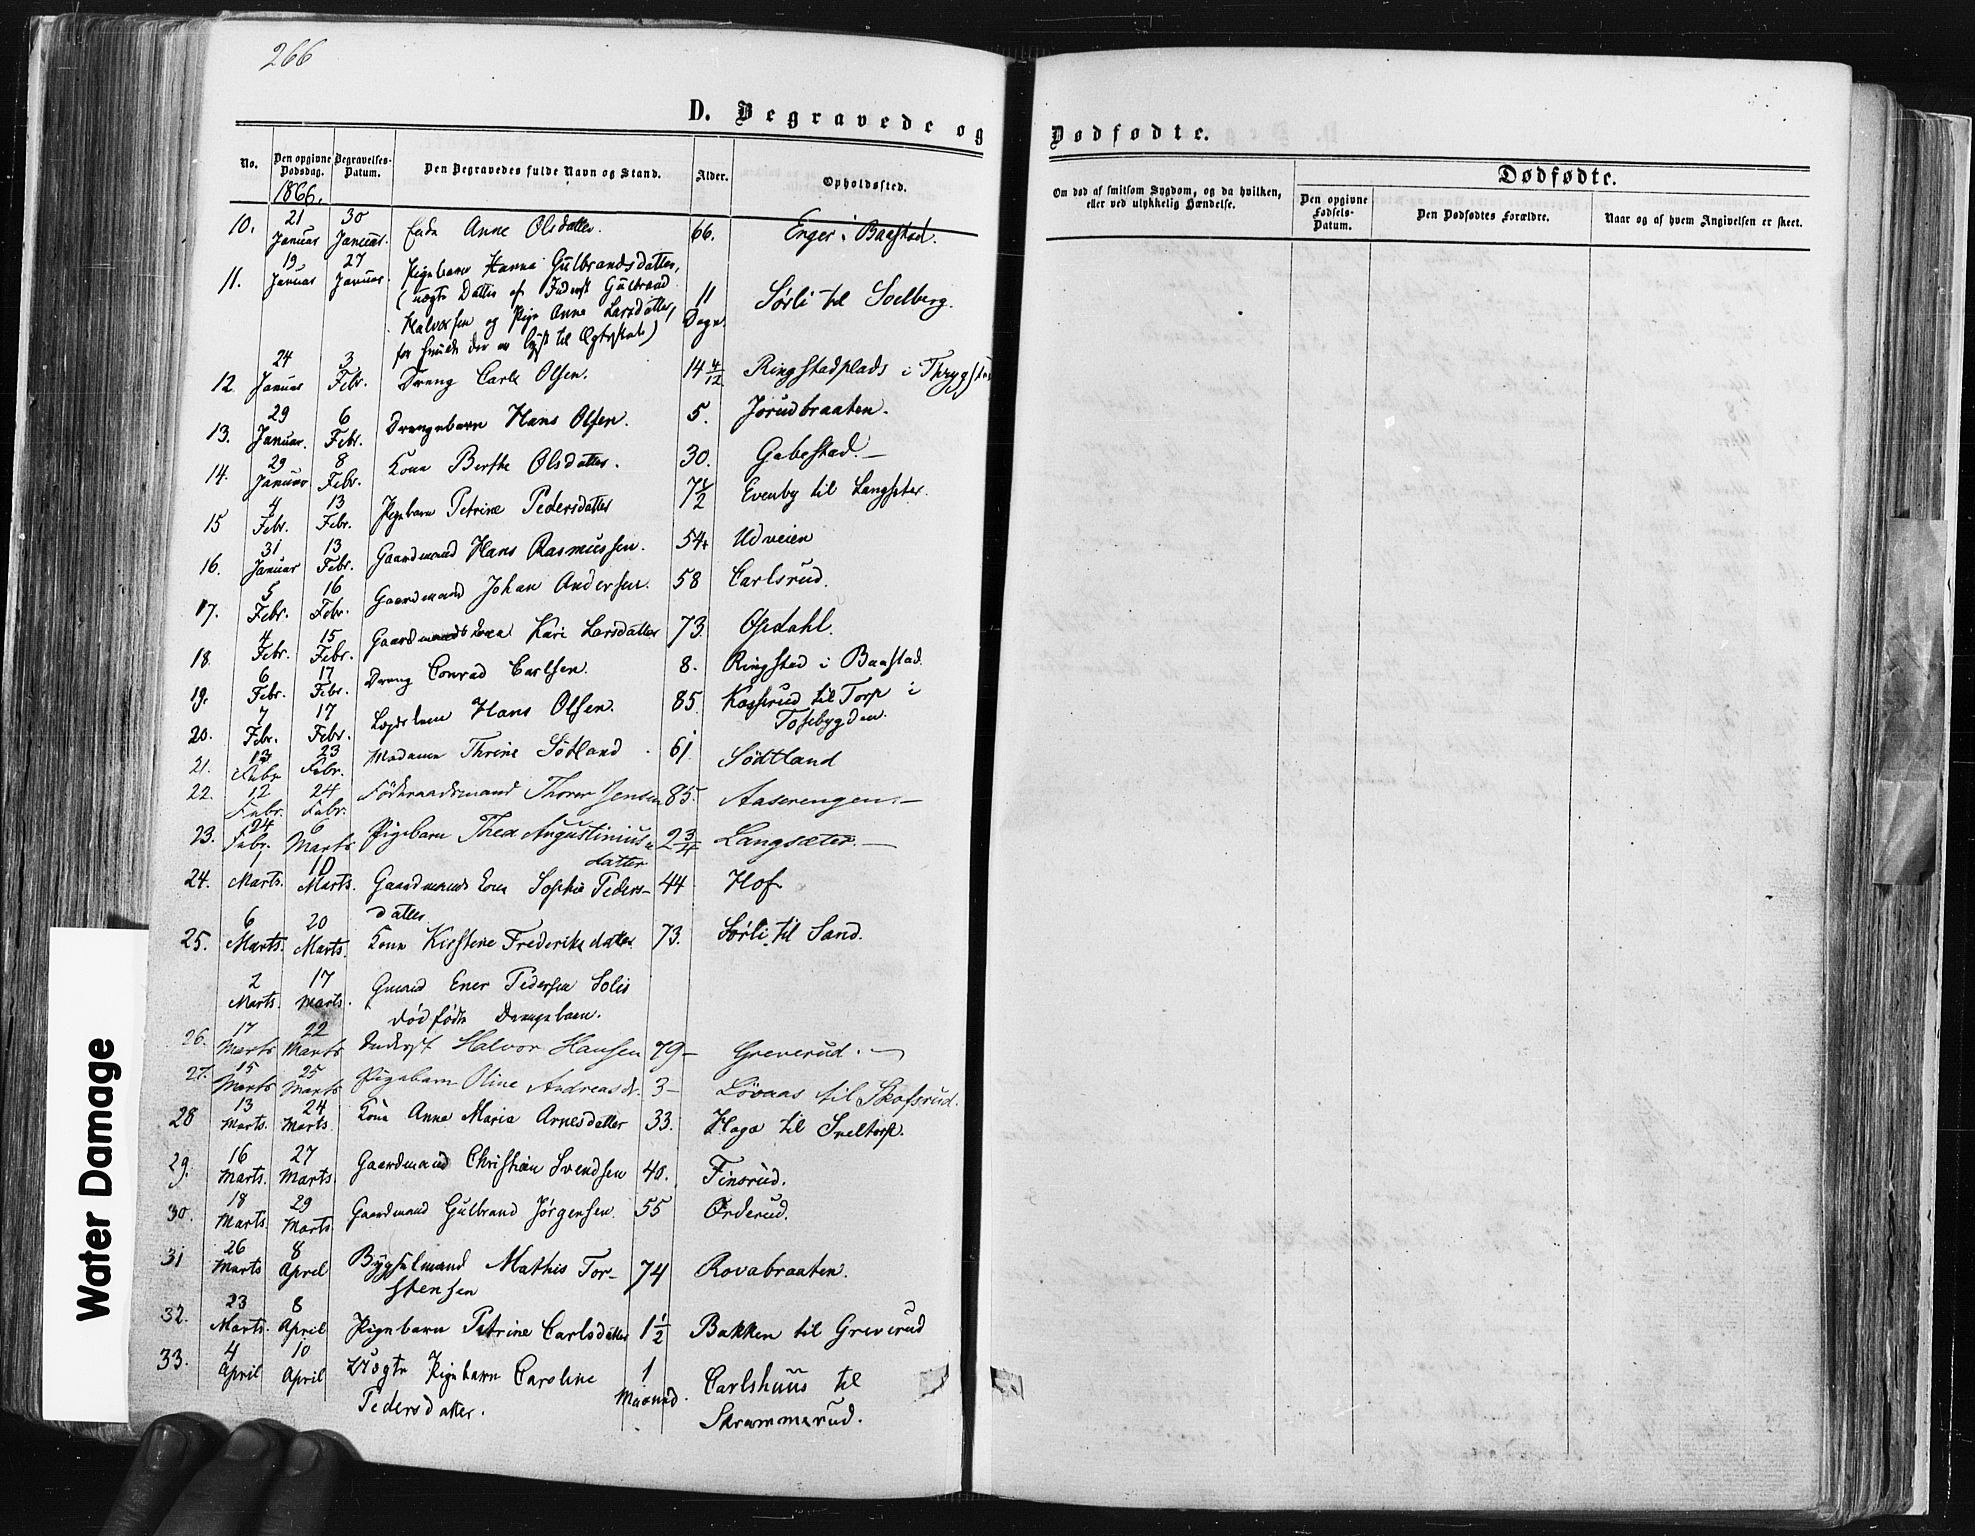 266
D. Begravede og Dødfødte.
No. Den opgivne Dødsdag. Begravelses-Datum. Den Begravedes fulde Navn og Stand. Alder. Opholdssted.
Om død af smitsom Sygdom, og da hvilken, eller ved ulykkelig Hændelse.
Dødfødte.
Den opgivne Fødsels-Datum. Den Dødfødtes Forældre. Naar og af hvem Angivelsen er skeet.
1866.
10. 21 Januar 30 Januar. Enke Anne Olsdatter. 66. Enger i Baastad.
11. 19 Januar 27 Januar. Pigebarn Hanna Gulbrandsdatter,
(uægte Datter af Inderst Gulbrand
Halvorsen og Pige Anne Larsdatter,
for hvilke der er lyst til Ægteskab) 11 Dage. Sørli til Soelberg.
12. 24 Januar 3 Febr. Dreng Carl Olsen. 14 4/12 Ringstadplads i Thrygstad
13. 29 Januar. 6 Febr. Drengebarn Hans Olsen. 5. Jorudbraaten.
14. 29 Januar 8 Febr. Kone Berthe Olsdatter. 30. Gabestad.
15 4 Febr. 13 Febr. Pigebarn Petrine Pedersdatter 7 1/2 Evenby til Langsæter.
16. 31 Januar 13 Febr. Gaardmand Hans Rasmussen. 54 Udveien
17. 5 Febr. 16 Febr. Gaardmand Johan Andersen. 58 Carlsrud.
18. 4 Febr. 15 Febr. Gaardmands Kone Kari Larsdatter 73. Opdahl.
19. 6 Febr. 17 Febr. Dreng Conrad Carlsen. 8. Ringstad i Baastad.
20. 7 Febr. 17 Febr. Lægdslem Hans Olsen. 85. Kasserud til Torp i
Tosebygden.
21. 13 Febr 23 Febr. Madame Thrine Sötland. 61 Södtland
22. 12 Febr. 24 Febr. Föderaadsmand Thorer Jensen 85. Aaserengen.
23. 24 Febr. 6 Marts Pigebarn Thea Augustinius
datter 2 3/4 Langsæter.
24. 1 Marts. 10 Marts. Gaardmands Kone Sophie Peders-
datter 44 Hof
25. 6 Marts. 20 Marts. Kone Kirstine Frederiksdatter 73. Sørli til Sand.
2 Marts. 17 Marts. Gmand Ener Pedersen Solis
dødfødte Drengebarn.
26. 17 Marts 22 Marts Inderst Halvor Hansen 79 Greverud.
27. 15 Marts 25 Marts Pigebarn Oline Andreasdt. 3 Lövaas til Skofsrud.
28 13 Marts. 24 Marts. Kone Anne Maria Arnesdatter 33. Haga til Sneltorp.
29. 16 Marts. 27 Marts. Gaardmand Christian Svendsen 40. Finsrud.
30. 18 Marts. 29 Marts. Gaardmand Gulbrand Jørgensen. 55 Ørderud.
31 26 Marts 8 April Bygselmand Mathis Tor-
stensen 74 Rovabraaten.
32. 23 Marts. 8 April Pigebarn Petrine Carlsdatter 1 1/2 Bakken til Greverud
33. 4 April 10 April Uægte Pigebarn Caroline
Pedersdatter. 1 Maaned. Carlshuus til
Skrammerud.
Water Damage